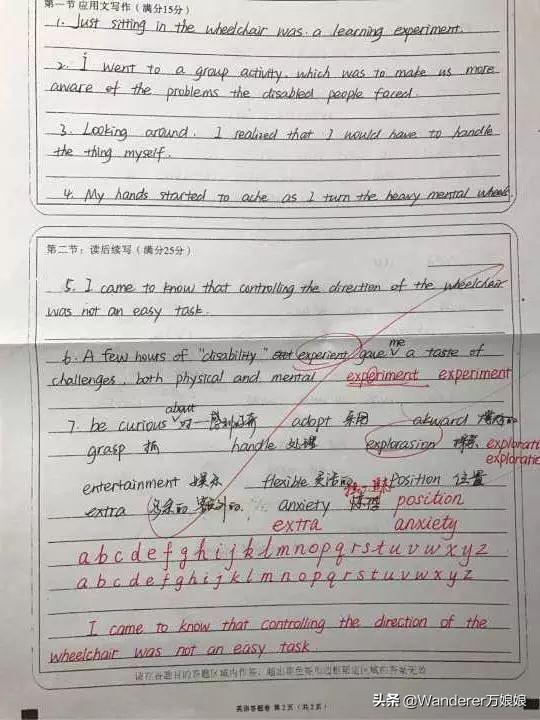 第一节 应用文写作（满分15分）
1. Just sitting in the wheelchair was a learning experiment.
2. I went to a group activity. which was to make us more
aware of the problems the disabled people faced.
3. Looking around. I realized that I would have to handle
the thing myself.
4. My hands started to ache as I turn the heavy mental wheels.
第二节：读后续写（满分25分）
5. I came to know that controlling the direction of the wheelchair
was not an easy task.
6. A few hours of "disability" experient gave me a taste of
challenges. both physical and mental experiment experiment
7. be curious about 对…感到好奇 adopt 采用 akward
grasp 抓 handle 处理 explorasion 探索
entertainment 娱乐 flexible 灵活的 Position 位置
extra anxiety position
extra anxiety
a b c d e f g h i j k l m n o p q r s t u v w x y z
a b c d e f g h i j k l m n o p q r s t u v w x y z
I came to know that controlling the direction of the
wheelchair was not an easy task.
请在各题目的答题区域内作答，超出黑色矩形边框限定区域的答案无效
英语答题卷 第2页（共2页）
头条 @Wanderer万娘娘